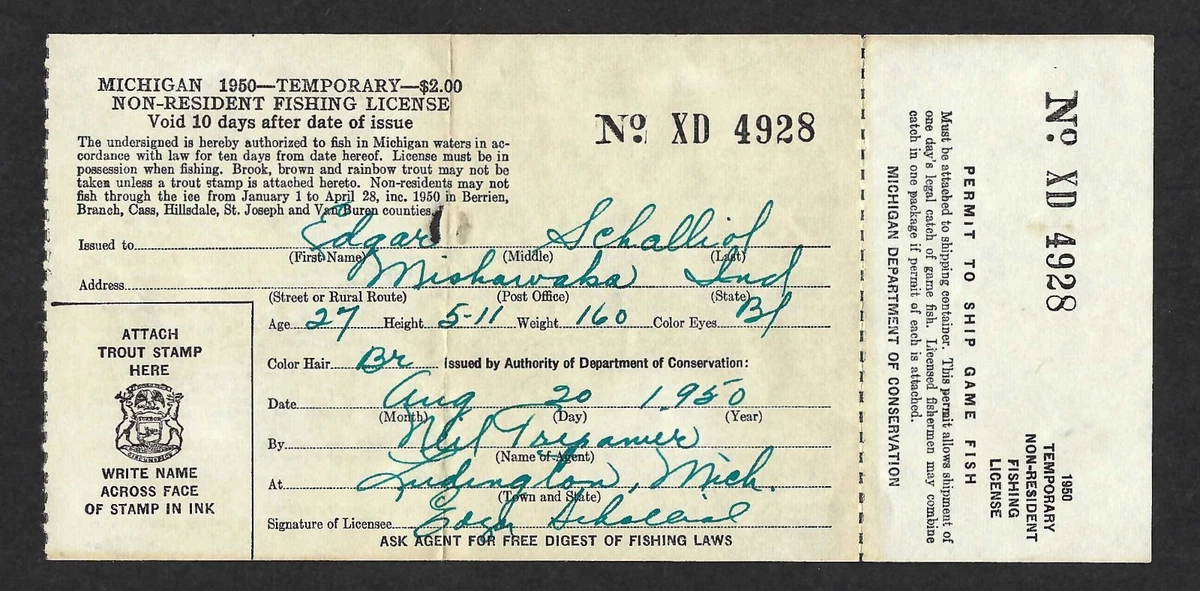 MICHIGAN 1950—TEMPORARY—$2.00
NON-RESIDENT FISHING LICENSE
Void 10 days after date of issue
The undersigned is hereby authorized to fish in Michigan waters in ac-
cordance with law for ten days from date hereof. License must be in
possession when fishing. Brook, brown and rainbow trout may not be
taken unless a trout stamp is attached hereto. Non-residents may not
fish through the ice from January 1 to April 28, inc. 1950 in Berrien,
Branch, Cass, Hillsdale, St. Joseph and Van Buren counties.
No. XD 4928
Issued to Edgar Schalliol
(First Name) (Middle) (Last)
Address Mishawaka Ind
(Street or Rural Route) (Post Office) (State)
Age 27 Height 5-11 Weight 160 Color Eyes Bl
Color Hair Br Issued by Authority of Department of Conservation:
Date Aug 20 1950
(Month) (Day) (Year)
By Neil Tripamer
(Name of Agent)
At Ludington, Mich.
(Town and State)
Signature of Licensee Edgar Schalliol
ASK AGENT FOR FREE DIGEST OF FISHING LAWS
ATTACH
TROUT STAMP
HERE
WRITE NAME
ACROSS FACE
OF STAMP IN INK
No. XD 4928
PERMIT TO SHIP GAME FISH
Must be attached to shipping container. This permit allows shipment of
one day's legal catch of game fish. Licensed fishermen may combine
catch in one package if permit of each is attached.
MICHIGAN DEPARTMENT OF CONSERVATION
1950
TEMPORARY
NON-RESIDENT
FISHING
LICENSE